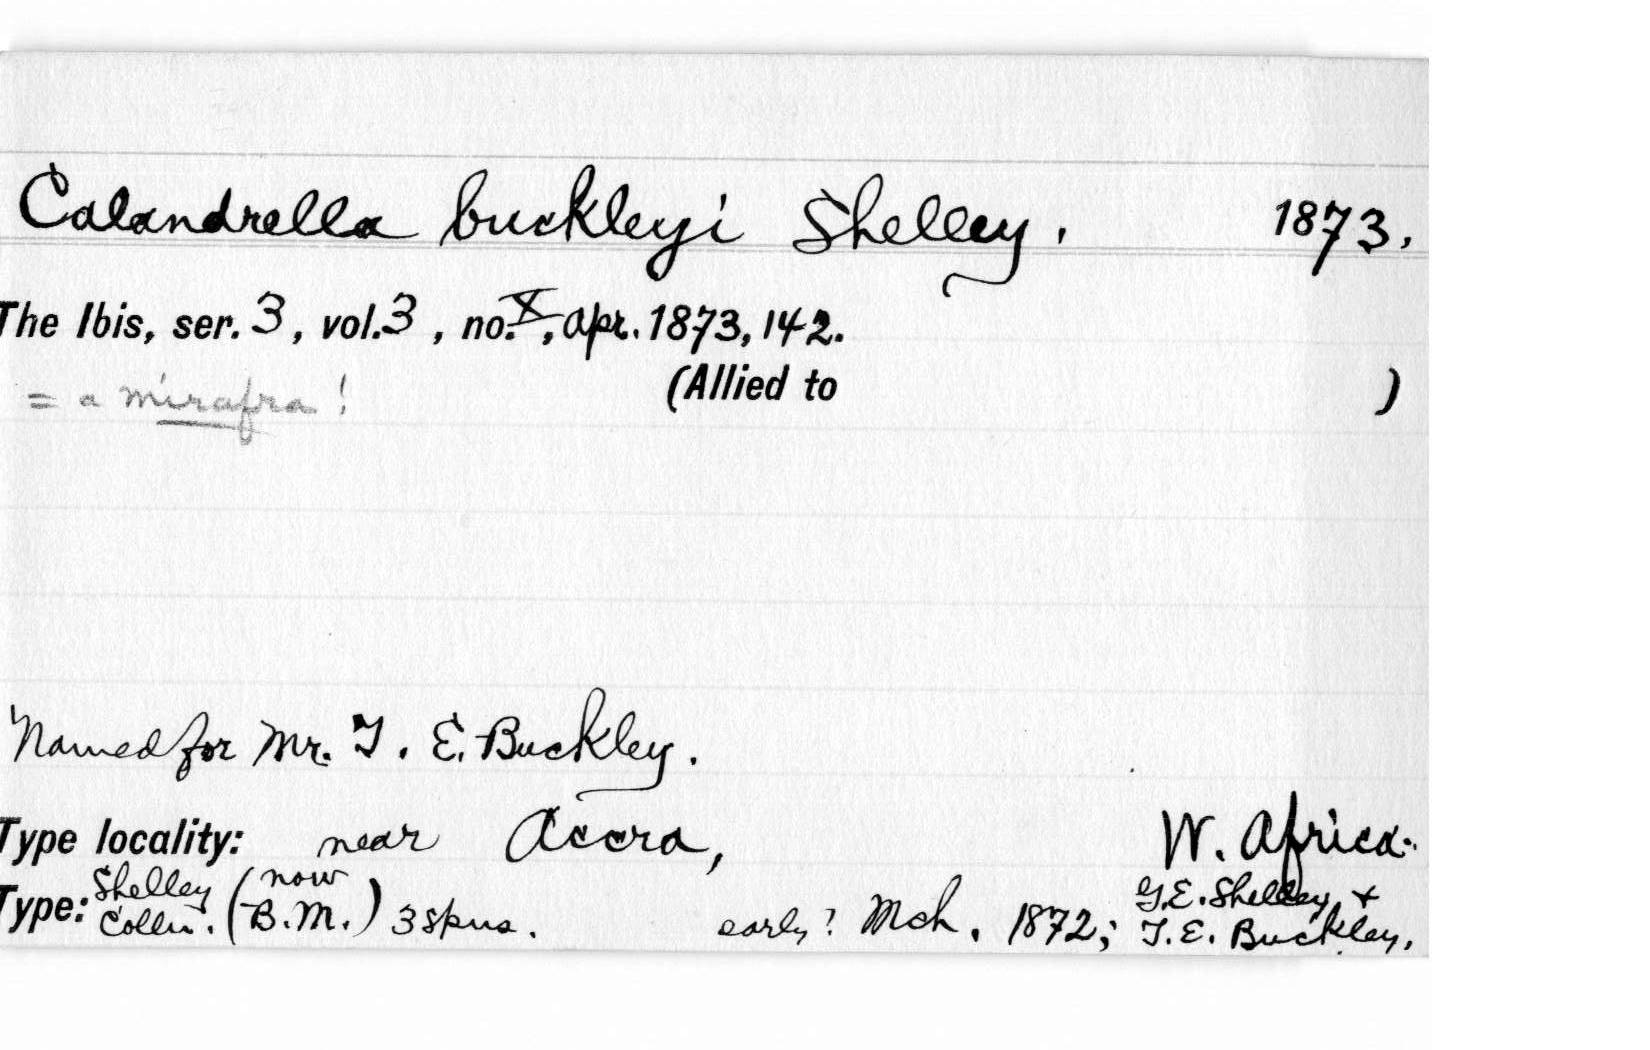 Calandrella buckleyi Shelley. 1873.
The Ibis, ser. 3, vol. 3, no. X, Apr. 1873, 142.
= a Mirafra! (Allied to )
Named for Mr. T. E. Buckley.
Type locality: near Accra, W. Africa.
Type: Shelley Colln. (now B.M.) 3 spns. early? Mch. 1872; G.E. Shelley + T.E. Buckley.